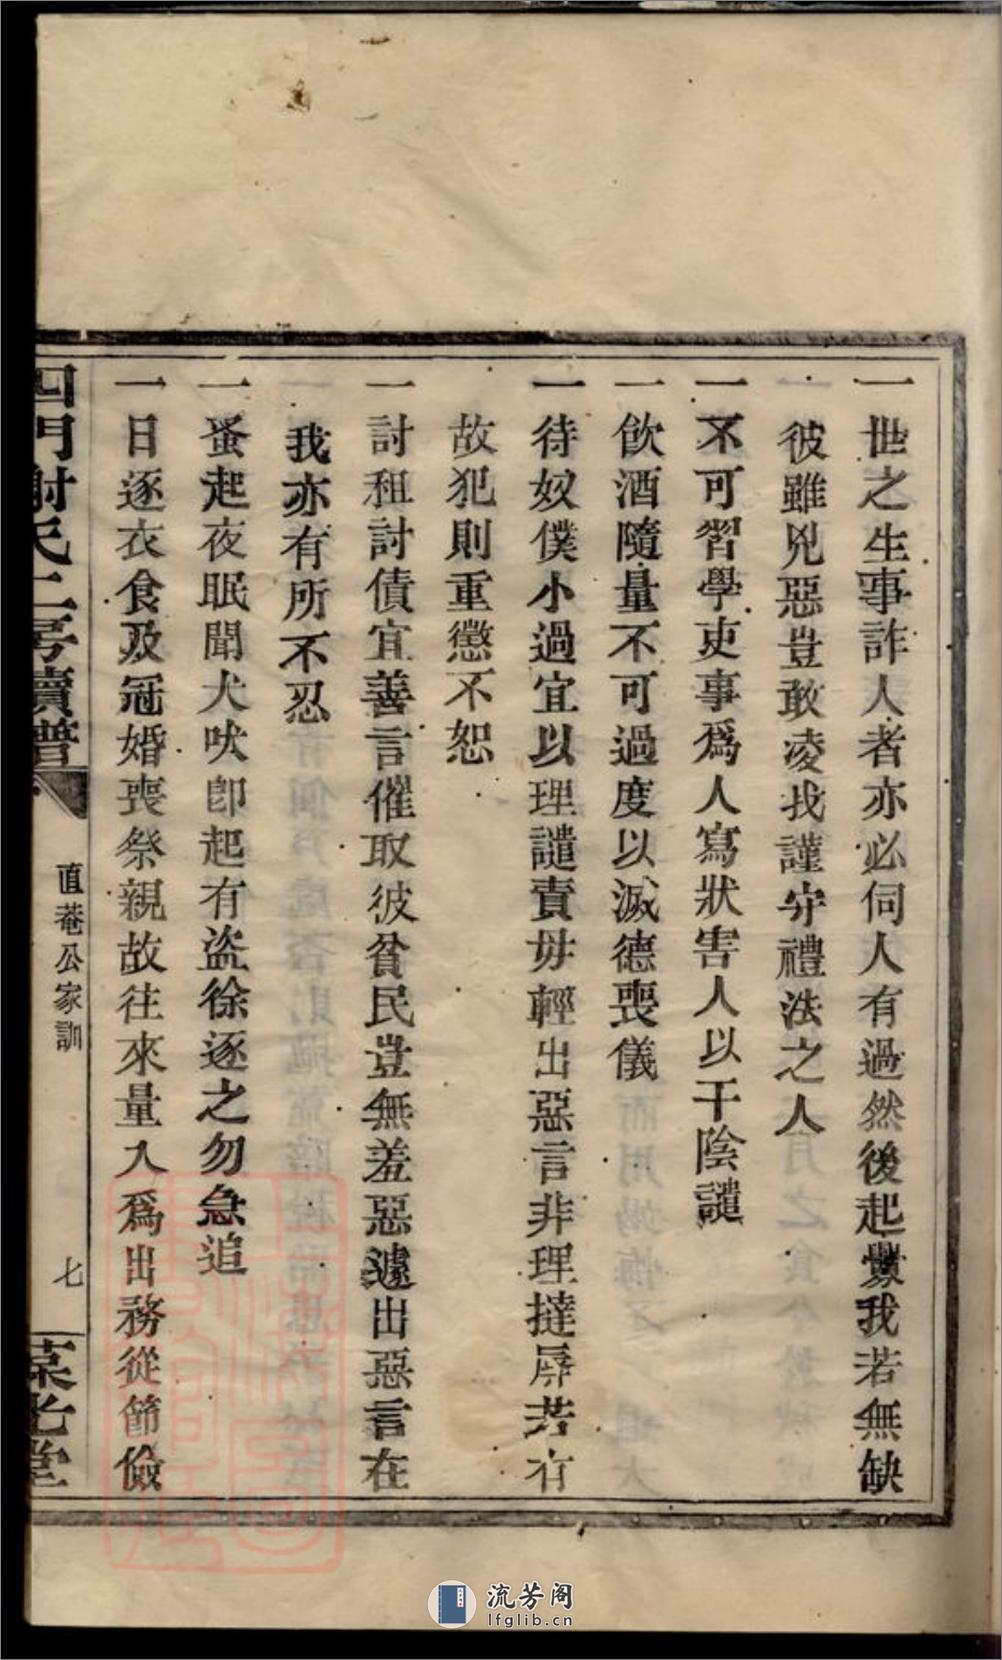 一世之生事詐人者亦必伺人有過然後起釁我若無缺
彼雖兇惡豈敢凌我謹守禮法之人
一不可習學吏事爲人寫狀害人以干陰譴
一飲酒隨量不可過度以滅德喪儀
一待奴僕小過宜以理譴責毋輕出惡言非理撻辱若有
故犯則重懲不恕
一討租討債宜善言催取彼貧民豈無羞惡遽出惡言在
我亦有所不忍
一蚤起夜眠聞犬吠卽起有盜徐逐之勿急追
一日逐衣食及冠婚喪祭親故往來量入爲出務從節儉
四門謝氏二房續譜
直菴公家訓
七
堂
流芳阁
lfglib.cn